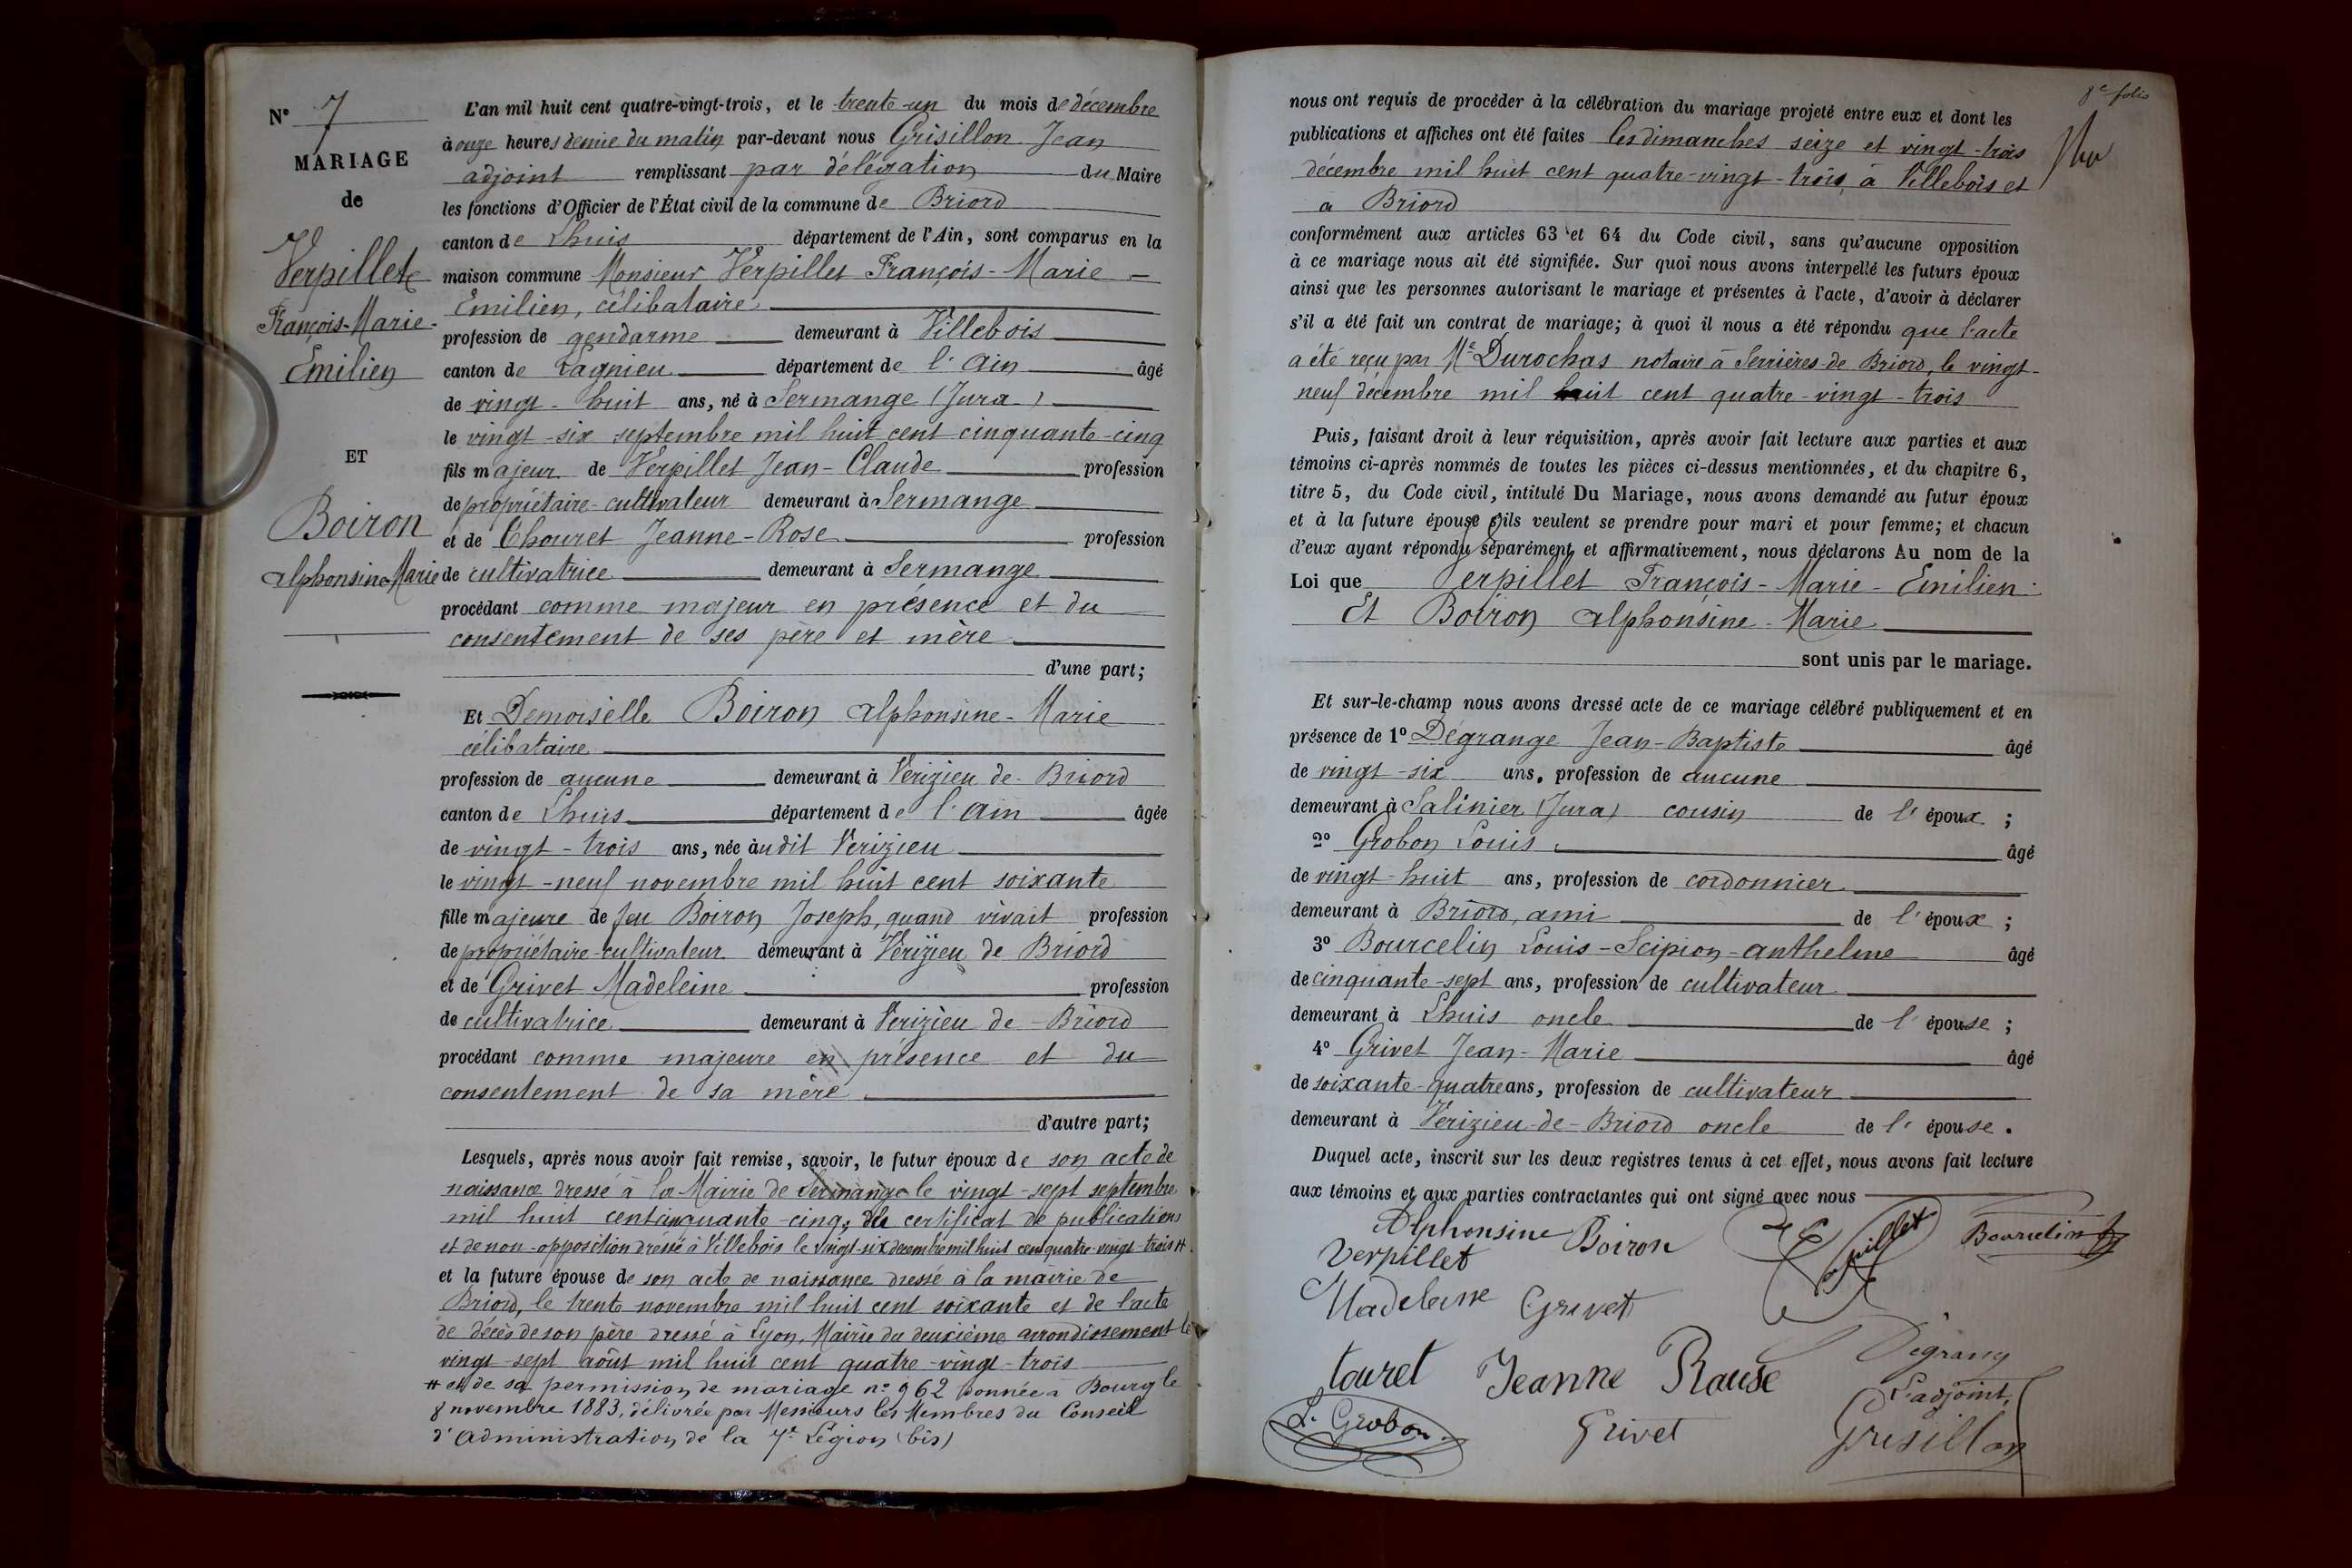 N° 7
MARIAGE
de
Verpillet
François-Marie-
Emilien
ET
Boiron
Alphonsine-Marie
L'an mil huit cent quatre-vingt-trois, et le trente-un du mois de décembre
à onze heures demie du matin par-devant nous Grisillon Jean
adjoint remplissant par délégation du Maire
les fonctions d'Officier de l'État civil de la commune de Briord
canton de Lhuis département de l'Ain, sont comparus en la
maison commune Monsieur Verpillet François-Marie-
Emilien, célibataire
profession de gendarme demeurant à Villebois
canton de Lagnieu département de l'Ain âgé
de vingt-huit ans, né à Sermange (Jura)
le vingt-six septembre mil huit cent cinquante-cinq
fils majeur de Verpillet Jean-Claude profession
de propriétaire-cultivateur demeurant à Sermange
et de Chouret Jeanne-Rose profession
de cultivatrice demeurant à Sermange
procédant comme majeur en présence et du
consentement de ses père et mère
d'une part;
Et Demoiselle Boiron Alphonsine-Marie
célibataire
profession de aucune demeurant à Vérizieu de Briord
canton de Lhuis département de l'Ain âgée
de vingt-trois ans, née àudit Vérizieu
le vingt-neuf novembre mil huit cent soixante
fille majeure de feu Boiron Joseph, quand vivait profession
de propriétaire-cultivateur demeurant à Vérizieu de Briord
et de Grivet Madeleine profession
de cultivatrice demeurant à Vérizieu de Briord
procédant comme majeure en présence et du
consentement de sa mère
d'autre part;
Lesquels, après nous avoir fait remise, savoir, le futur époux de son acte de
naissance dressé à la Mairie de Sermange le vingt-sept septembre
mil huit cent cinquante-cinq, du certificat de publications
et de non-opposition dressé à Villebois le vingt-six décembre mil huit cent quatre-vingt-trois #
et la future épouse de son acte de naissance dressé à la mairie de
Briord, le trente novembre mil huit cent soixante et de l'acte
de décès de son père dressé à Lyon, Mairie du deuxième arrondissement le
vingt-sept août mil huit cent quatre-vingt-trois
# et de sa permission de mariage n° 962 donnée à Bourg le
8 novembre 1883, délivrée par Messieurs les Membres du Conseil
d'Administration de la 7e Légion (bis)
8e folio
nous ont requis de procéder à la célébration du mariage projeté entre eux et dont les
publications et affiches ont été faites les dimanches seize et vingt-trois
décembre mil huit cent quatre-vingt-trois, à Villebois et
à Briord
conformément aux articles 63 et 64 du Code civil, sans qu'aucune opposition
à ce mariage nous ait été signifiée. Sur quoi nous avons interpellé les futurs époux
ainsi que les personnes autorisant le mariage et présentes à l'acte, d'avoir à déclarer
s'il a été fait un contrat de mariage; à quoi il nous a été répondu que l'acte
a été reçu par Me Durochas notaire à Serrières-de Briord, le vingt-
neuf décembre mil huit cent quatre-vingt-trois
Puis, faisant droit à leur réquisition, après avoir fait lecture aux parties et aux
témoins ci-après nommés de toutes les pièces ci-dessus mentionnées, et du chapitre 6,
titre 5, du Code civil, intitulé Du Mariage, nous avons demandé au futur époux
et à la future épouse s'ils veulent se prendre pour mari et pour femme; et chacun
d'eux ayant répondu séparément et affirmativement, nous déclarons Au nom de la
Loi que Verpillet François-Marie-Emilien
Et Boiron Alphonsine-Marie
sont unis par le mariage.
Et sur-le-champ nous avons dressé acte de ce mariage célébré publiquement et en
présence de 1° Dégrange Jean-Baptiste âgé
de vingt-six ans, profession de aucune
demeurant à Salinier (Jura) cousin de l'époux ;
2° Grobon Louis âgé
de vingt-huit ans, profession de cordonnier
demeurant à Briord, ami de l'époux ;
3° Bourcelin Louis-Scipion-Anthelme âgé
de cinquante-sept ans, profession de cultivateur
demeurant à Lhuis oncle de l'épouse ;
4° Grivet Jean-Marie âgé
de soixante-quatre ans, profession de cultivateur
demeurant à Vérizieu-de-Briord oncle de l'épouse.
Duquel acte, inscrit sur les deux registres tenus à cet effet, nous avons fait lecture
aux témoins et aux parties contractantes qui ont signé avec nous
Alphonsine Boiron
Verpillet
Bourcelin
Madeleine Grivet
Dégrang
touret Jeanne Rause
L'adjoint,
L. Grobon
Grivet
Grisillon